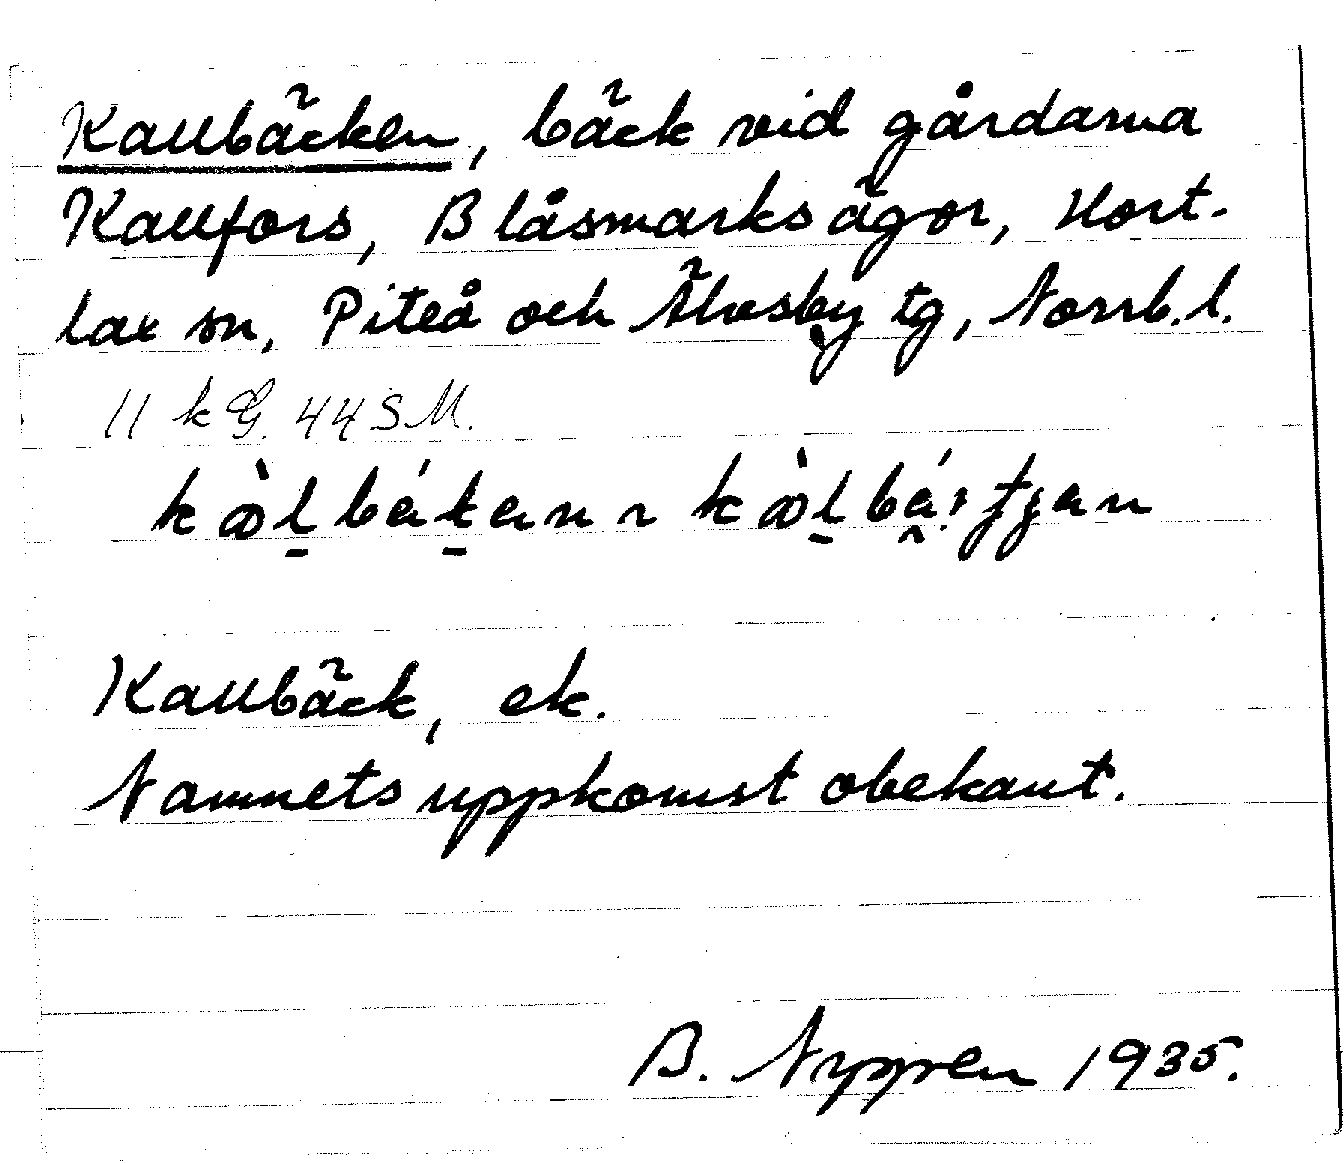 Kallbäcken, bäck vid gårdarna
Kallfors, Blåsmarks ägor, Hort-
lax sn, Piteå och Älvsby tg, Norrb. l.
11 k G. 44 S M.
Kallbäck, ek.
Namnets uppkomst obekant.
B. Nygren 1935.